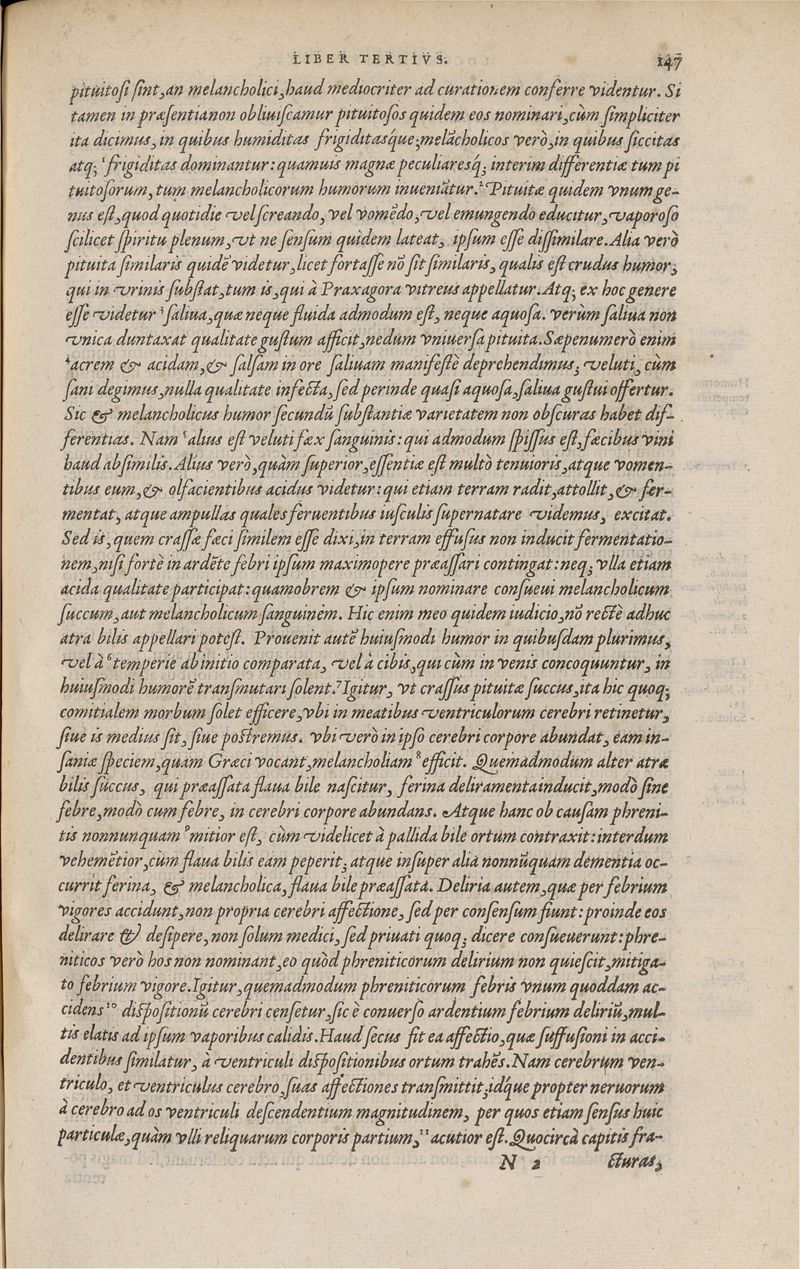 LIBER TERTIVS. 147
pituitosi sint, an melancholici, haud mediocriter ad curationem conferre videntur. Si
tamen in præsentianon obliuiscamur pituitosos quidem eos nominari, cùm simpliciter
ita dicimus, in quibus humiditas frigiditasque: melãcholicos verò, in quibus siccitas
atq; ¹frigiditas dominantur: quamuis magnæ peculiaresq; interim differentiæ tum pi
tuitosorum, tum melancholicorum humorum inueniãtur. ²Pituitæ quidem vnum ge-
nus est, quod quotidie vel screando, vel vomẽdo, vel emungendo educitur, vaporoso
scilicet spiritu plenum, vt ne sensum quidem lateat, ipsum esse dissimilare. Alia verò
pituita similaris quidẽ videtur, licet fortasse nõ sit similaris, qualis est crudus humor,
qui in vrinis substat, tum is, qui à Praxagora vitreus appellatur. Atq; ex hoc genere
esse videtur ³saliua, quæ neque fluida admodum est, neque aquosa. verùm saliua non
vnica duntaxat qualitate gustum afficit, nedum vniuersa pituita. Sæpenumerò enim
⁴acrem & acidam, & salsam in ore saliuam manifestè deprehendimus, veluti, cùm
sani degimus, nulla qualitate infecta, sed perinde quasi aquosa, saliua gustui offertur.
Sic & melancholicus humor secundũ substantiæ varietatem non obscuras habet dif-
ferentias. Nam ⁵alius est veluti fæx sanguinis: qui admodum spissus est, fæcibus vini
haud absimilis. Alius verò, quàm superior, essentiæ est multò tenuioris, atque vomen-
tibus eum, & olfacientibus acidus videtur: qui etiam terram radit, attollit, & fer-
mentat, atque ampullas quales feruentibus iusculis supernatare videmus, excitat.
Sed is, quem crassæ fæci similem esse dixi, in terram effusus non inducit fermentatio-
nem, nisi fortè in ardẽte febri ipsum maximopere præassari contingat: neq; vlla etiam
acida qualitate participat: quamobrem & ipsum nominare consueui melancholicum
succum, aut melancholicum sanguinem. Hic enim meo quidem iudicio, nõ rectè adhuc
atra bilis appellari potest. Prouenit autẽ huiusmodi humor in quibusdam plurimus,
vel à ⁶temperie ab initio comparata, vel à cibis, qui cùm in venis concoquuntur, in
huiusmodi humorẽ transmutari solent. ⁷Igitur, vt crassus pituitæ succus, ita hic quoq;
comitialem morbum solet efficere, vbi in meatibus ventriculorum cerebri retinetur,
siue is medius sit, siue postremus. vbi verò in ipso cerebri corpore abundat, eam in-
saniæ speciem, quam Græci vocant, melancholiam ⁸efficit. Quemadmodum alter atræ
bilis succus, qui præassata flaua bile nascitur, ferina deliramentainducit, modò sine
febre, modò cum febre, in cerebri corpore abundans. Atque hanc ob causam phreni-
tis nonnunquam ⁹mitior est, cùm videlicet à pallida bile ortum contraxit: interdum
vehemẽtior, cùm flaua bilis eam peperit; atque insuper alià nonnũquam dementia oc-
currit ferina, & melancholica, flaua bile præassata. Deliria autem, quæ per febrium
vigores accidunt, non propria cerebri affectione, sed per consensum fiunt: proinde eos
delirare & desipere, non solum medici, sed priuati quoq; dicere consueuerunt: phre-
niticos verò hos non nominant, eo quòd phreniticorum delirium non quiescit, mitiga-
to febrium vigore. Igitur, quemadmodum phreniticorum febris vnum quoddam ac-
cidens ¹⁰ dispositionũ cerebri censetur, sic è conuerso ardentium febrium deliriũ, mul-
tis elatis ad ipsum vaporibus calidis. Haud secus fit ea affectio, quæ suffusioni in acci-
dentibus similatur, à ventriculi dispositionibus ortum trahẽs. Nam cerebrum ven-
triculo, et ventriculus cerebro, suas affectiones transmittit, idq̀ue propter neruorum
à cerebro ad os ventriculi descendentium magnitudinem, per quos etiam sensus huic
particulæ, quàm vlli reliquarum corporis partium, ¹¹ acutior est. Quocircà capitis fra-
N 2 cturas,